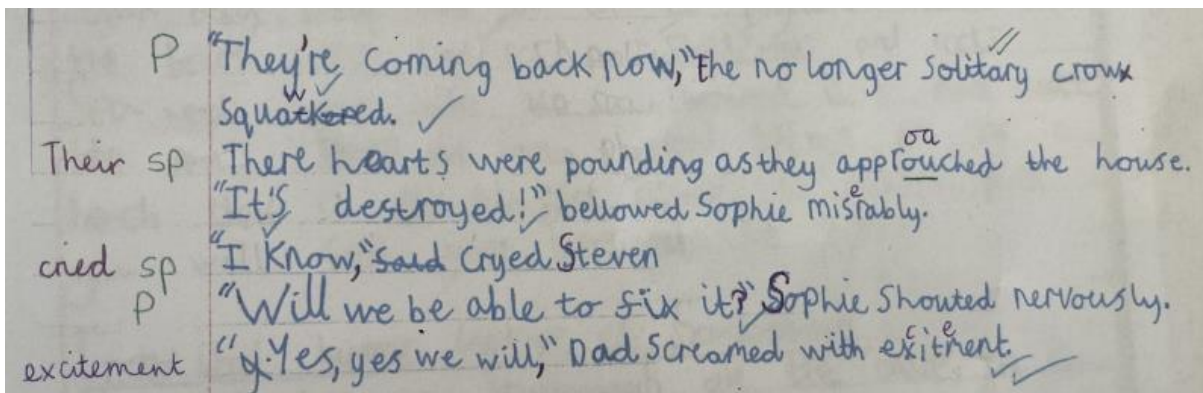 P "They're coming back now," the no longer solitary crow
squaked.
Their sp There hearts were pounding as they approuched the house. oa
"It's destroyed!" bellowed Sophie misrably. e
cried sp "I know," said cryed Steven
P "Will we be able to fix it?" Sophie shouted nervously.
excitement "y.Yes, yes we will," Dad screamed with exitment. c e